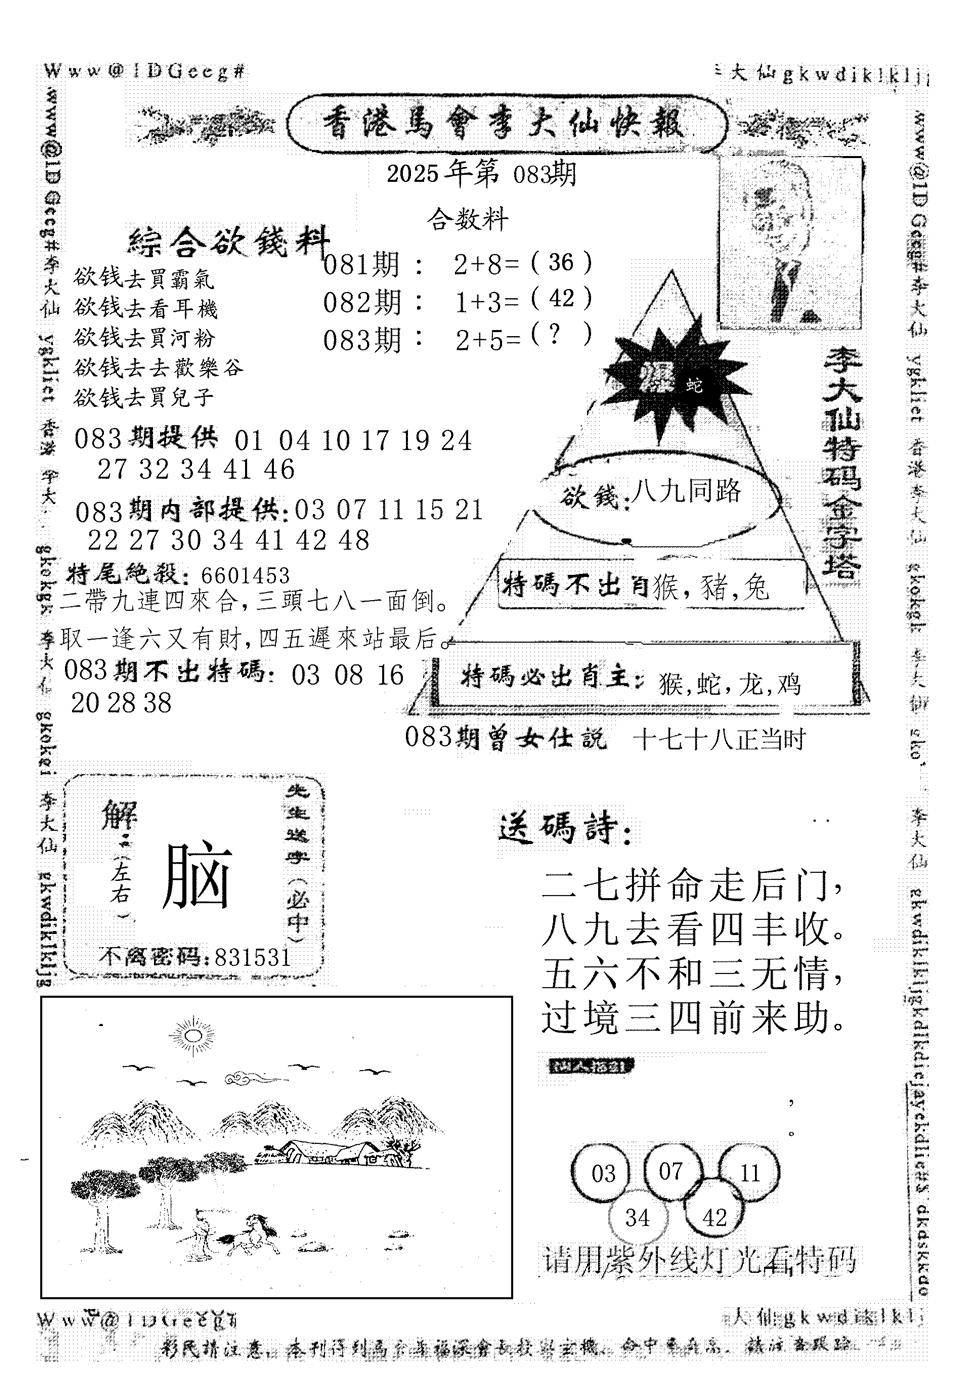 Www@1DGeeg#
李大仙gkwdiklklj
香港馬會李大仙快報
2025年第 083期
合数料
綜合欲錢料
欲钱去買霸氣
欲钱去看耳機
欲钱去買河粉
欲钱去去歡樂谷
欲钱去買兒子
081期 : 2+8=(36)
082期 : 1+3=(42)
083期 : 2+5=(?)
083期提供 01 04 10 17 19 24
27 32 34 41 46
083期内部提供:03 07 11 15 21
22 27 30 34 41 42 48
特尾絶殺: 6601453
二帶九連四來合,三頭七八一面倒。
取一逢六又有財,四五遲來站最后。
083期不出特碼: 03 08 16
20 28 38
李大仙特码金字塔
爆 蛇
欲錢:八九同路
特碼不出肖猴,豬,兔
特碼必出肖主: 猴,蛇,龙,鸡
083期曾女仕説 十七十八正当时
解:(左右)
脑
先生送字(必中)
不离密码:831531
送碼詩:
二七拼命走后门,
八九去看四丰收。
五六不和三无情,
过境三四前来助。
03 07 11
34 42
请用紫外线灯光看特码
Www@1DGeeg#
大仙gkwdiklklj
www@1DGeeg#李大仙 ygkliet 香港 李大 gkokgk 李大仙 gkokei 李大仙 gkwdiklkljg
www@1DGeeg#李大仙 ygkliet 香港李大仙 gkokgk 李大仙 gko 李大仙 gkwdiklkljgkdlkdiejayekdlie#$ dkdskkdo